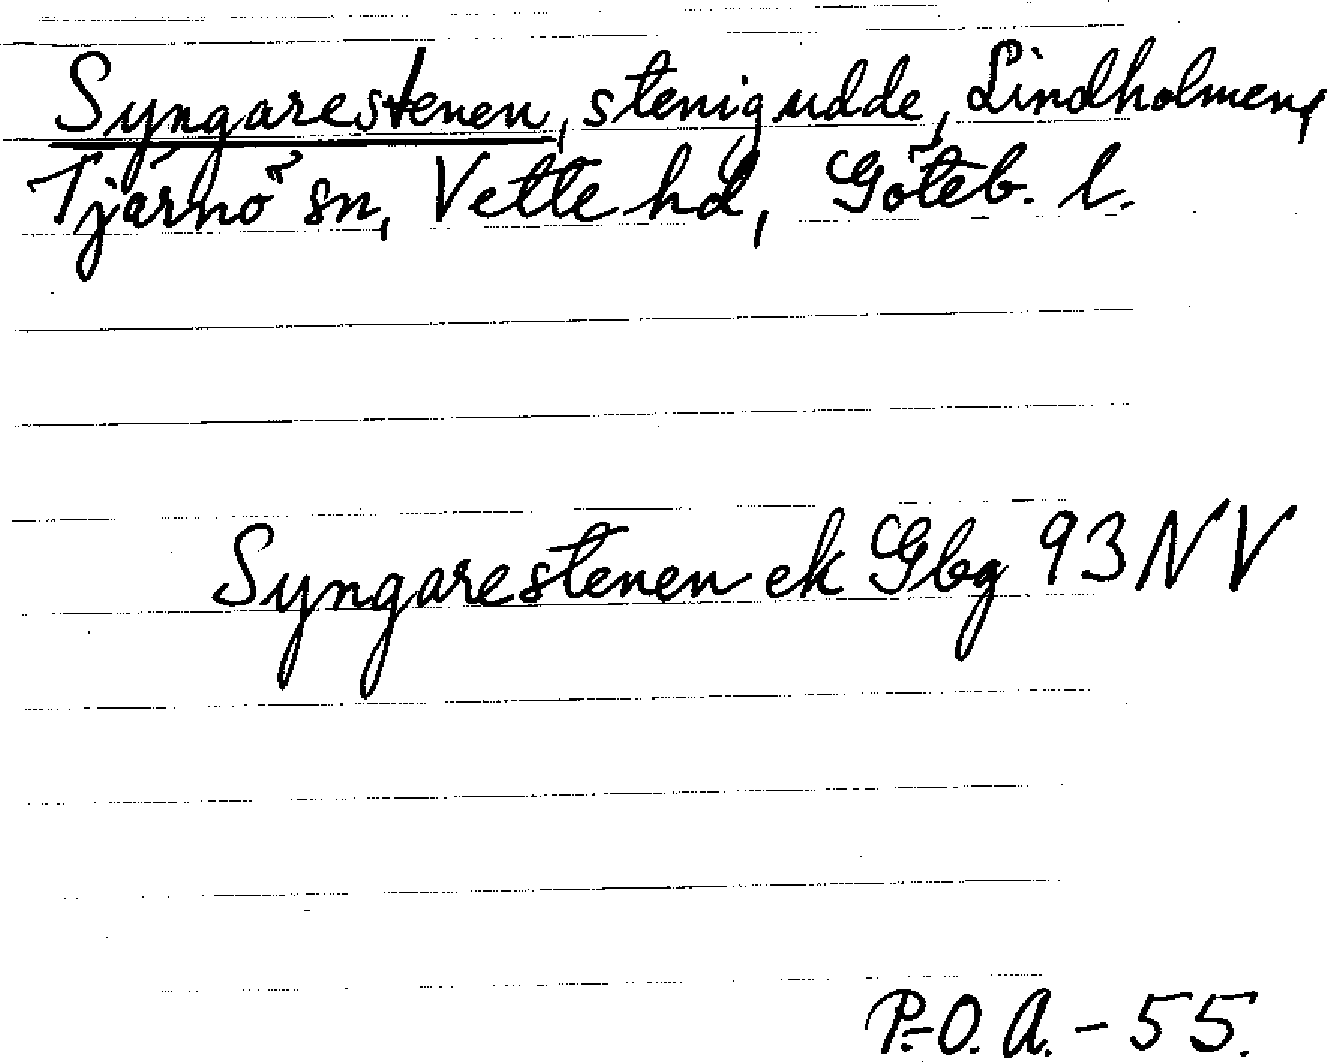 Syngarestenen, stenig udde, Lindholmen,
Tjärnö sn, Vette hd, Göteb. l.
Syngarestenen ek Gbg 93 NV
P.-O. A. - 55.